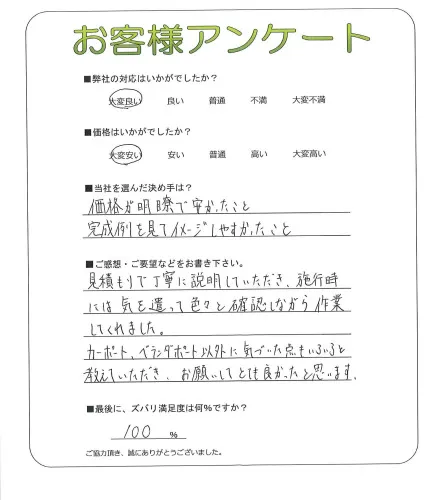 お客様アンケート
■弊社の対応はいかがでしたか？
大変良い 良い 普通 不満 大変不満
■価格はいかがでしたか？
大変安い 安い 普通 高い 大変高い
■当社を選んだ決め手は？
価格が明瞭で安かったこと
完成例を見てイメージしやすかったこと
■ご感想・ご要望などをお書き下さい。
見積もりで丁寧に説明していただき、施行時
には気を遣って色々と確認しながら作業
してくれました。
カーポート、ベランダポート以外に気づいた点もいろいろと
教えていただき、お願いしてとても良かったと思います。
■最後に、ズバリ満足度は何％ですか？
100 ％
ご協力頂き、誠にありがとうございました。